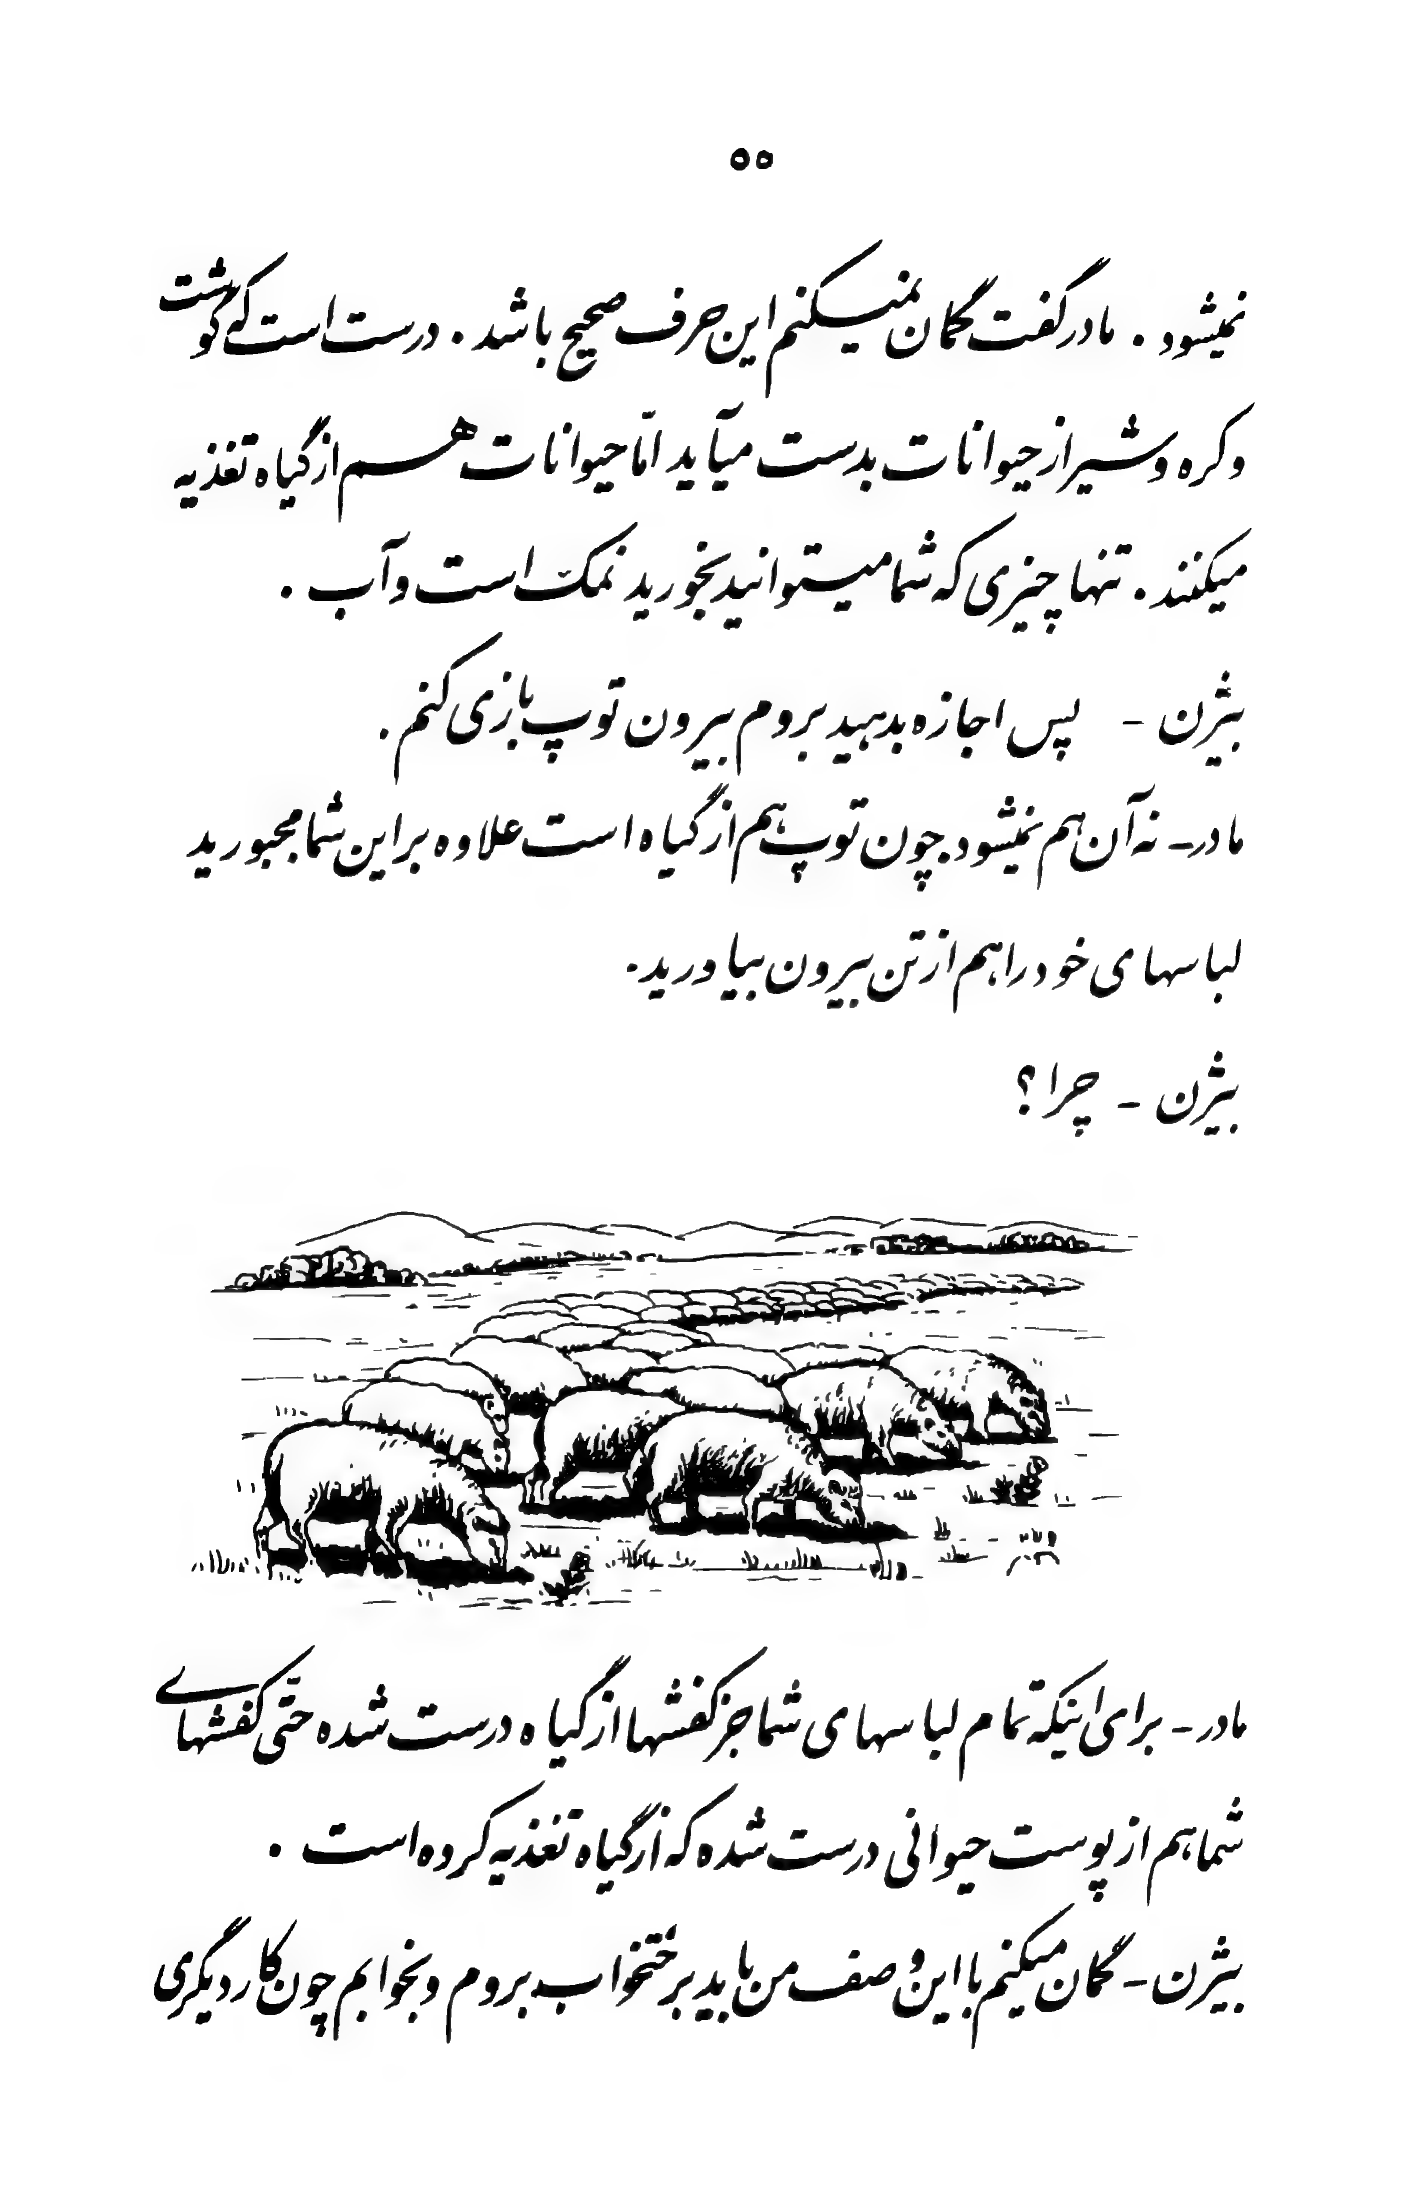 ۵۵
نمیشود . مادر گفت گمان نمیکنم این حرف صحیح باشد . درست است که گوشت
و کره و شیر از حیوانات بدست میآید امّا حیوانات هم از گیاه تغذیه
میکنند . تنها چیزی که شما میتوانید بخورید نمک است و آب .
بیژن - پس اجازه بدهید بروم بیرون توپ بازی کنم .
مادر - نه آن هم نمیشود چون توپ هم از گیاه است علاوه بر این شما مجبورید
لباسهای خود را هم از تن بیرون بیاورید .
بیژن - چرا ؟
مادر - برای اینکه تمام لباسهای شما جز کفشها از گیاه درست شده حتّی کفشهای
شما هم از پوست حیوانی درست شده که از گیاه تغذیه کرده است .
بیژن - گمان میکنم با این وصف من باید برختخواب بروم و بخوابم چون کار دیگری